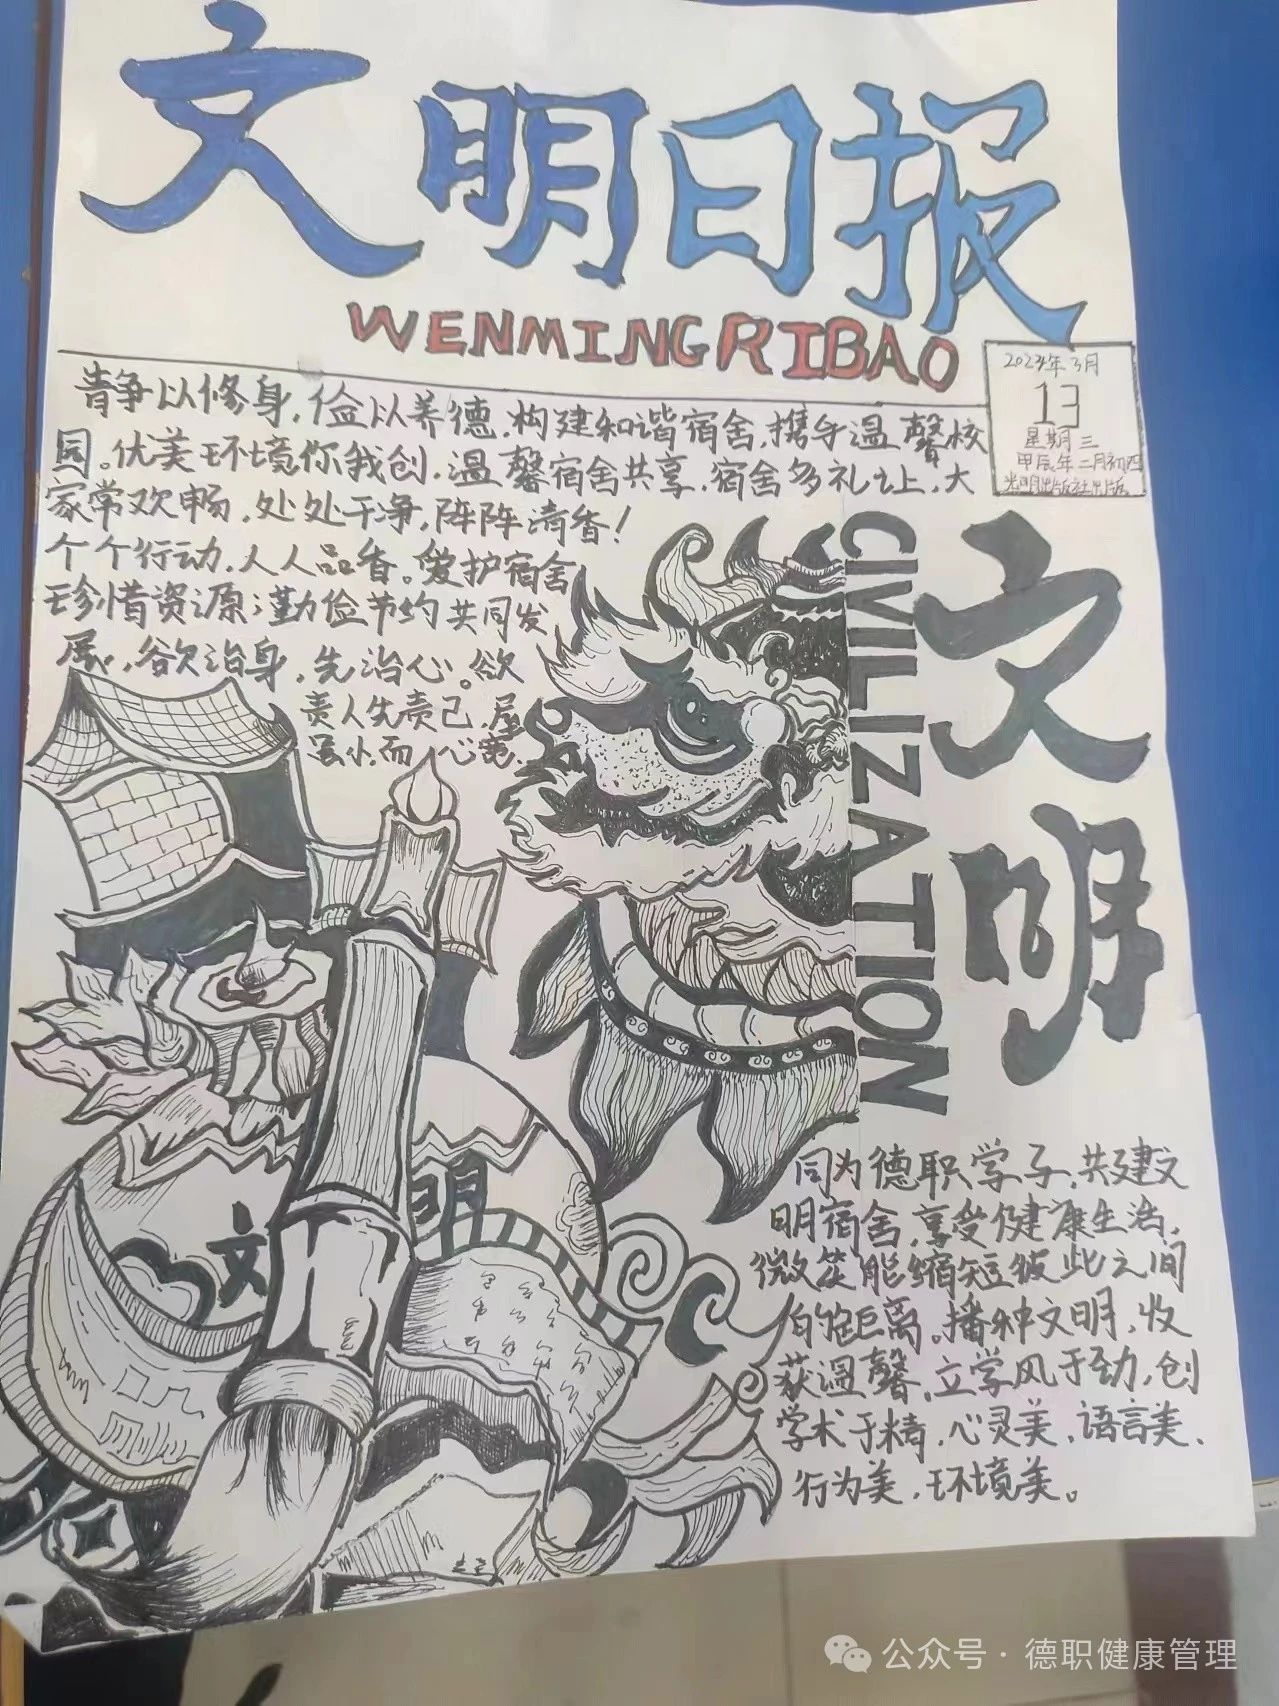 文明日报
WENMING RIBAO
2024年3月
13
星期三
甲辰年二月初四
光明出版社出版
青争以修身,俭以养德,构建和谐宿舍,携手温馨校
园。优美环境你我创,温馨宿舍共享,宿舍多礼让,大
家常欢畅,处处干净,阵阵清香!
个个行动,人人品香。爱护宿舍
珍惜资源;勤俭节约共同发
展,欲治身,先治心。欲
责人先责己,屋
虽小,而心宽.
CIVILIZATION
文明
文明
同为德职学子,共建文
明宿舍,享受健康生活,
微笑能缩短彼此之间
的距离。播种文明,收
获温馨,立学风于勤,创
学术于精,心灵美,语言美、
行为美,环境美。
公众号·德职健康管理